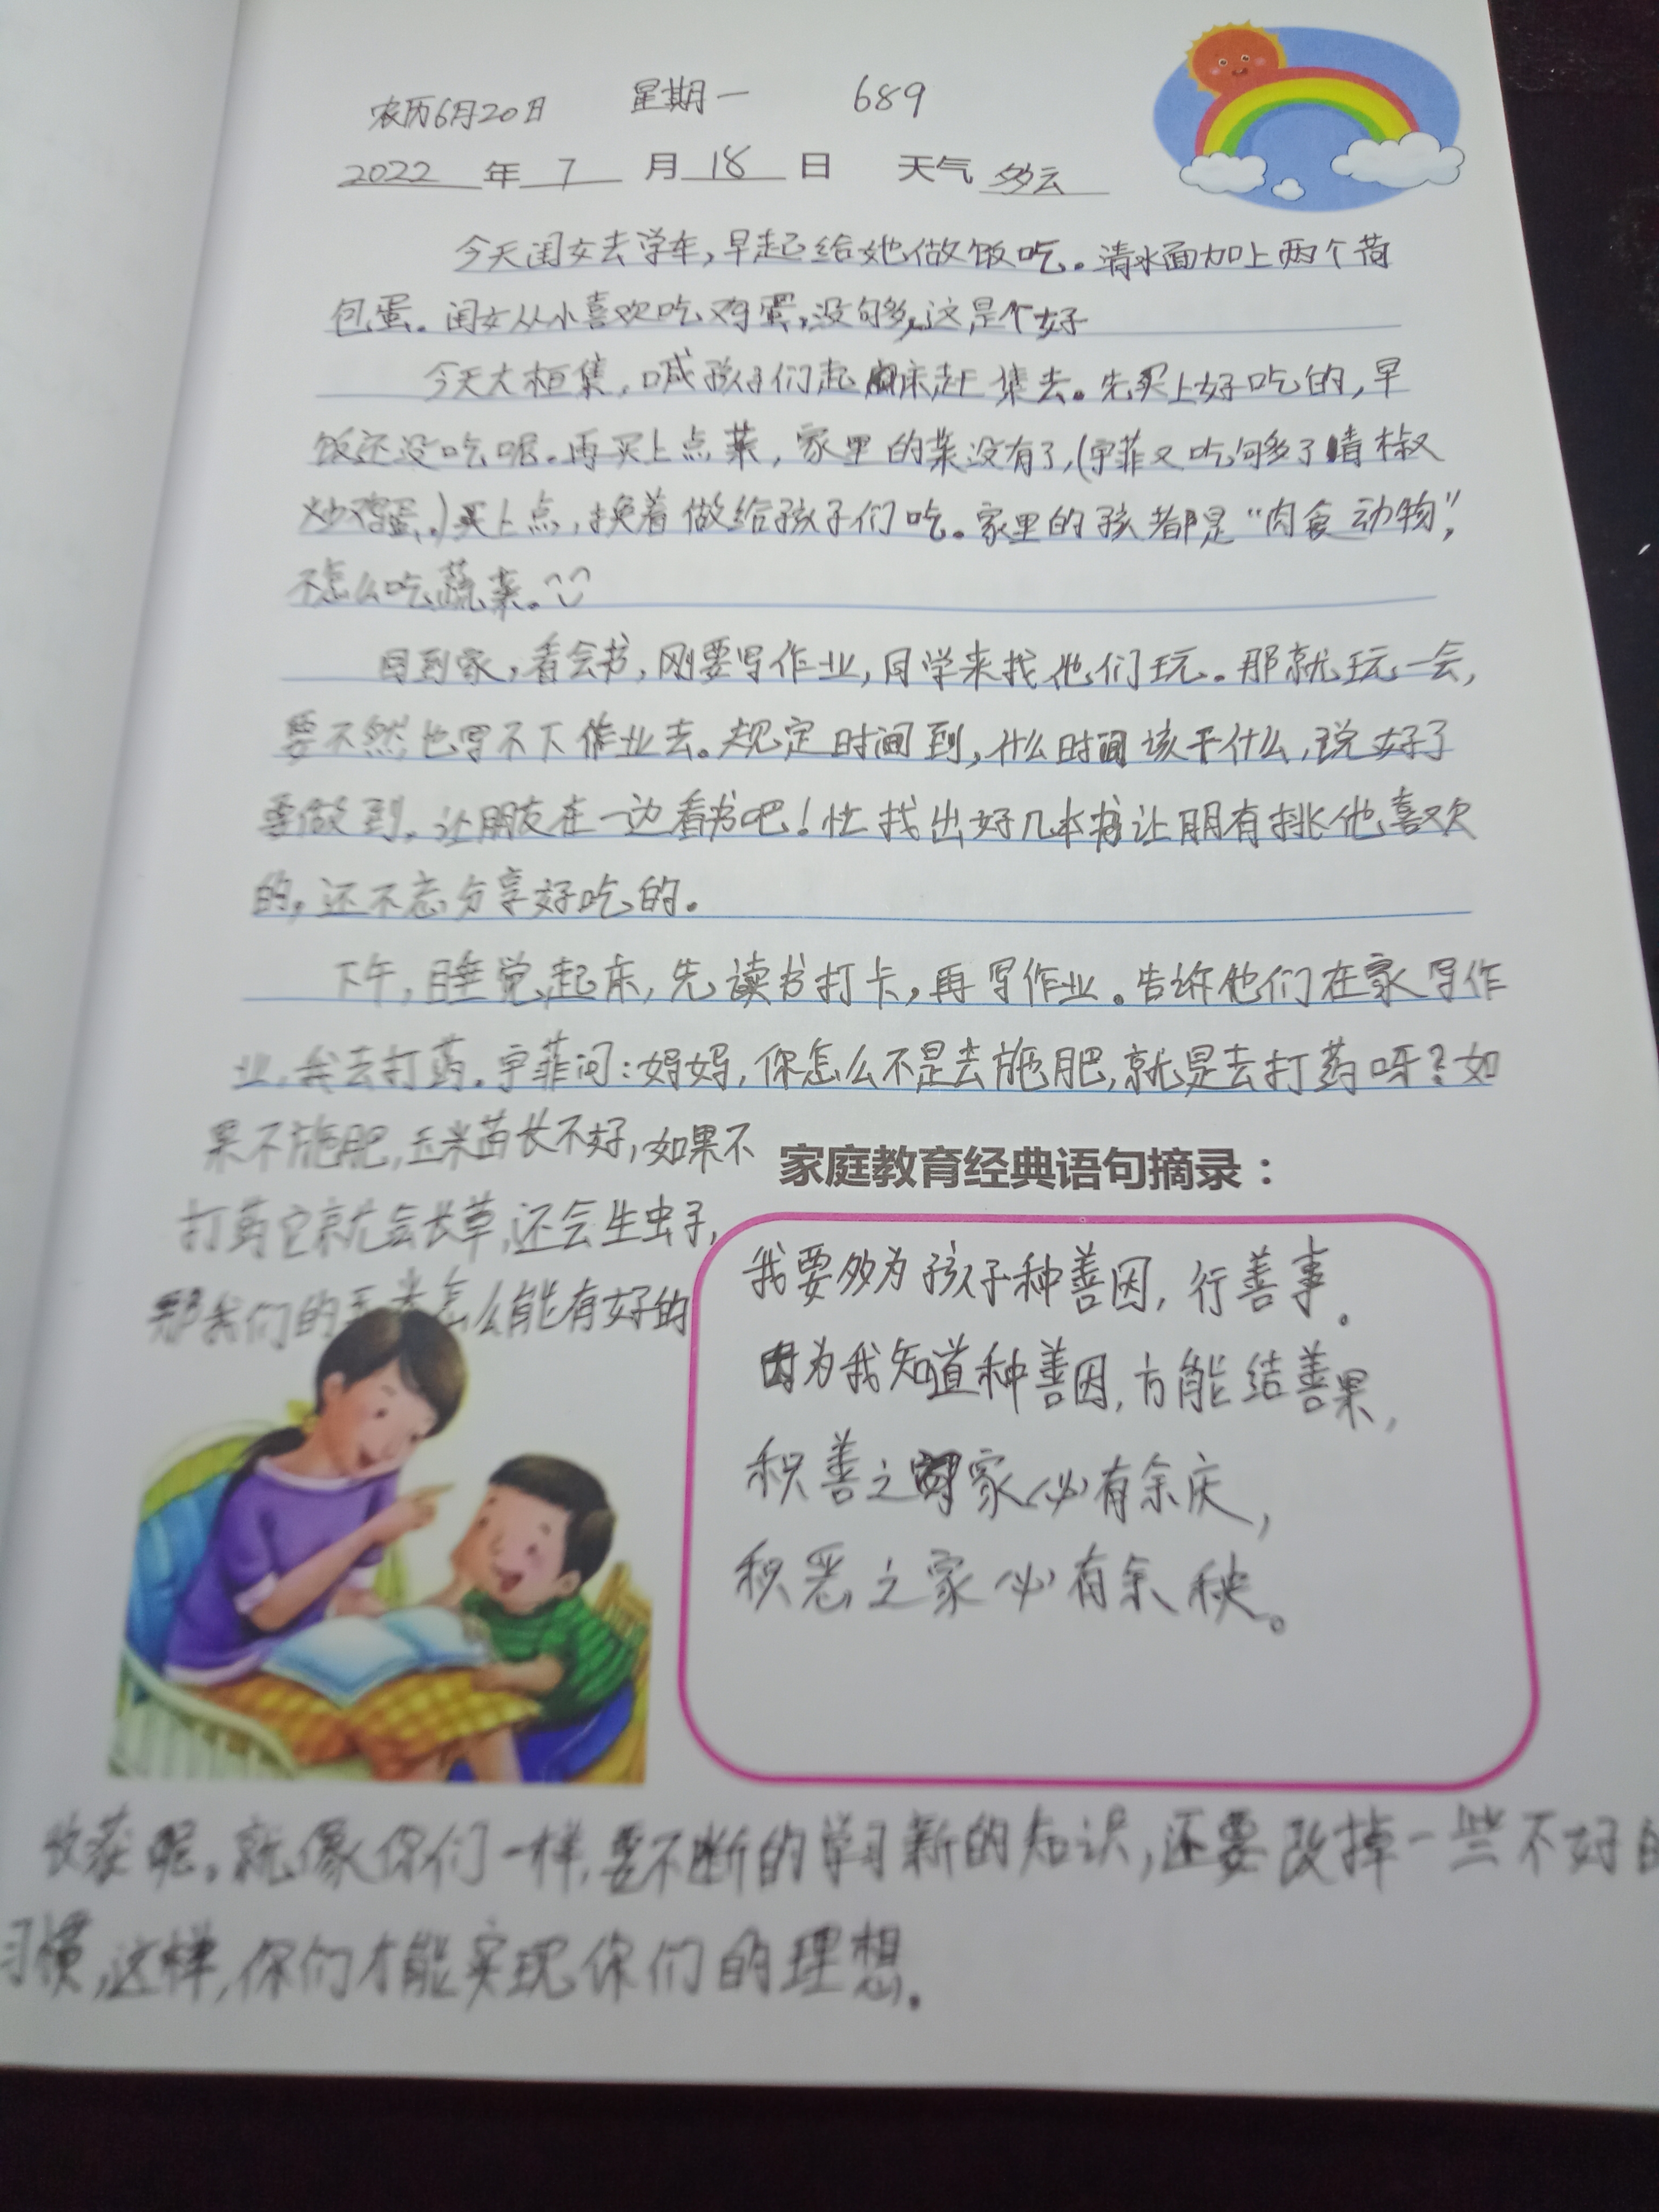 农历6月20日 星期一 689
2022年7月18日 天气多云
今天闺女去学车,早起给她做饭吃。清水面加上两个荷
包蛋。闺女从小喜欢吃鸡蛋,没够,这是个好
今天大桓集,喊孩子们起床赶集去。先买上好吃的,早
饭还没吃呢。再买上点菜,家里的菜没有了,(宇菲又吃够了青椒
炒鸡蛋。)买上点,换着做给孩子们吃。家里的孩都是“肉食动物”,
不怎么吃蔬菜。
回到家,看会书,刚要写作业,同学来找他们玩。那就玩一会,
要不然也写不下作业去。规定时间到,什么时间该干什么,说好了
要做到。让朋友在一边看书吧!忙找出好几本书让朋有挑他喜欢
的,还不忘分享好吃的。
下午,睡觉起床,先读书打卡,再写作业。告诉他们在家写作
业,我去打药。宇菲问:妈妈,你怎么不是去施肥,就是去打药呀?如
果不施肥,玉米苗长不好,如果不
打药它就会长草,还会生虫子,
那我们的玉米怎么能有好的
家庭教育经典语句摘录:
我要多为孩子种善因,行善事。
因为我知道种善因,方能结善果,
积善之家必有余庆,
积恶之家必有余秧。
收获呢。就像你们一样,要不断的学习新的知识,还要改掉一些不好的
习惯,这样,你们才能实现你们的理想。